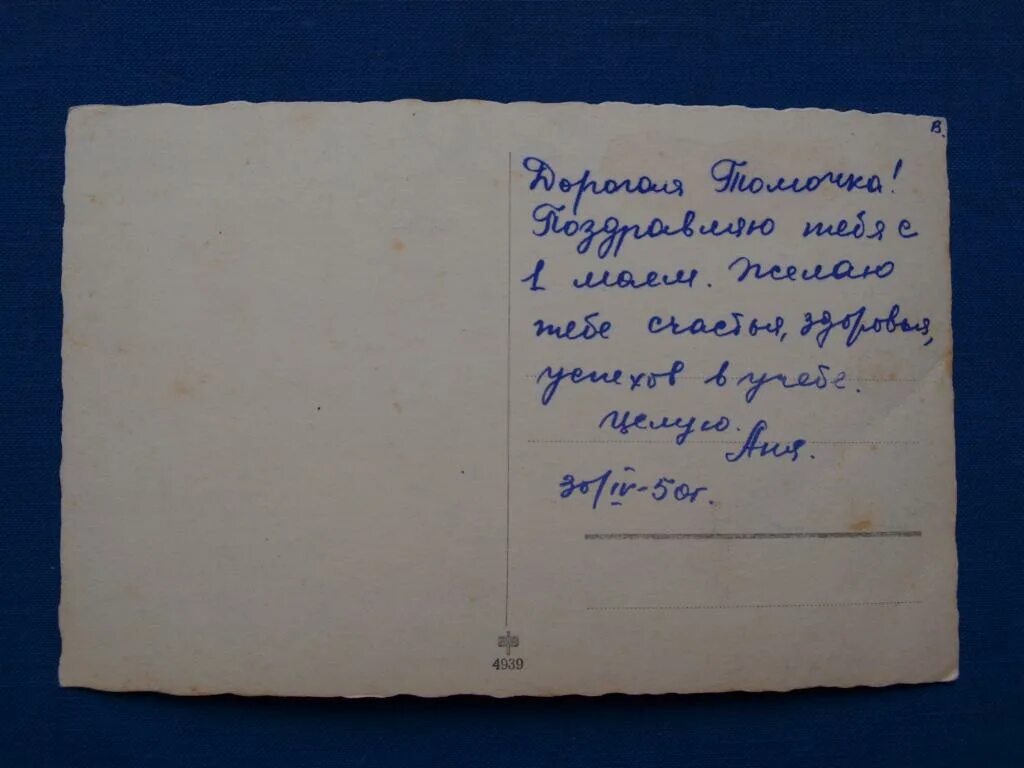 В.
Дорогая Томочка!
Поздравляю тебя с
1 маем. Желаю
тебе счастья, здоровья,
успехов в учебе.
Целую.
Аня.
30/IV-50г.
4939